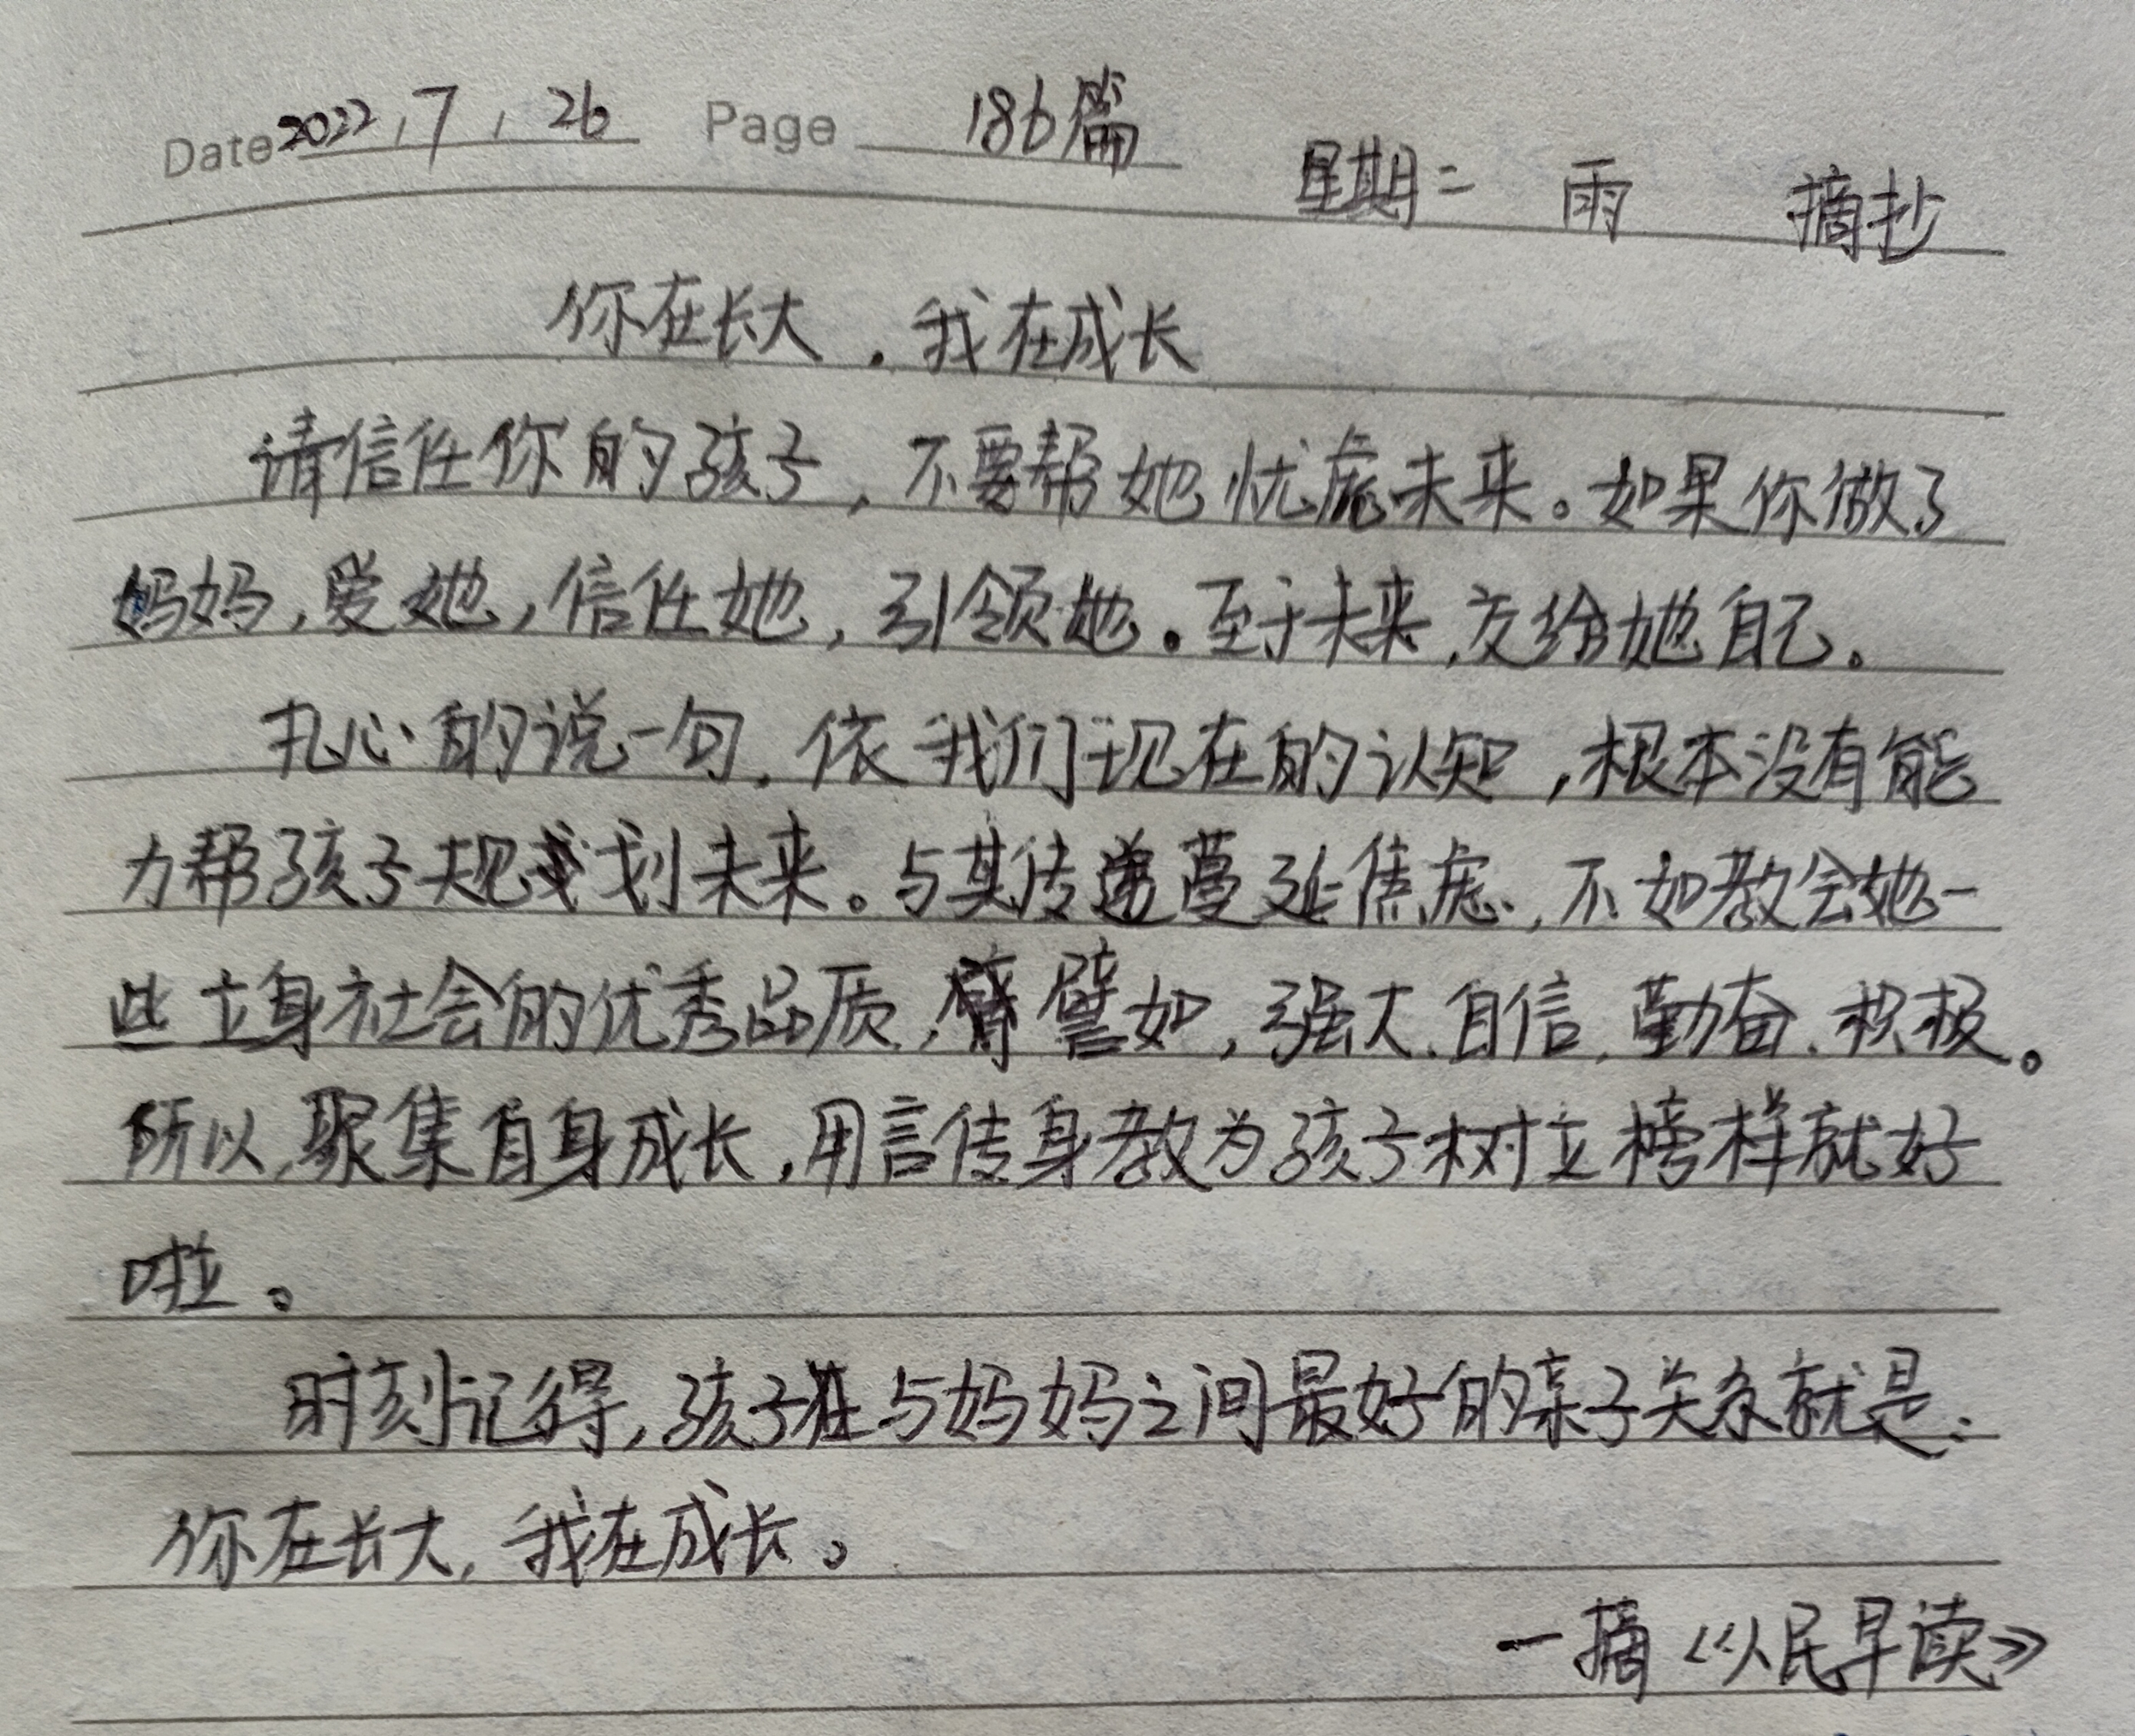 Date 2022.7.26 Page 186篇 星期二 雨 摘抄
你在长大,我在成长
请信任你的孩子,不要帮她忧虑未来。如果你做了
妈妈,爱她,信任她,引领她。至于未来,交给她自己。
扎心的说一句,依我们现在的认知,根本没有能
力帮孩子规划未来。与其传递蔓延焦虑,不如教会她一
些立身社会的优秀品质,譬如,强大、自信、勤奋、积极。
所以,聚集自身成长,用言传身教为孩子树立榜样就好
啦。
时刻记得,孩子与妈妈之间最好的亲子关系就是:
你在长大,我在成长。
一摘《人民早读》